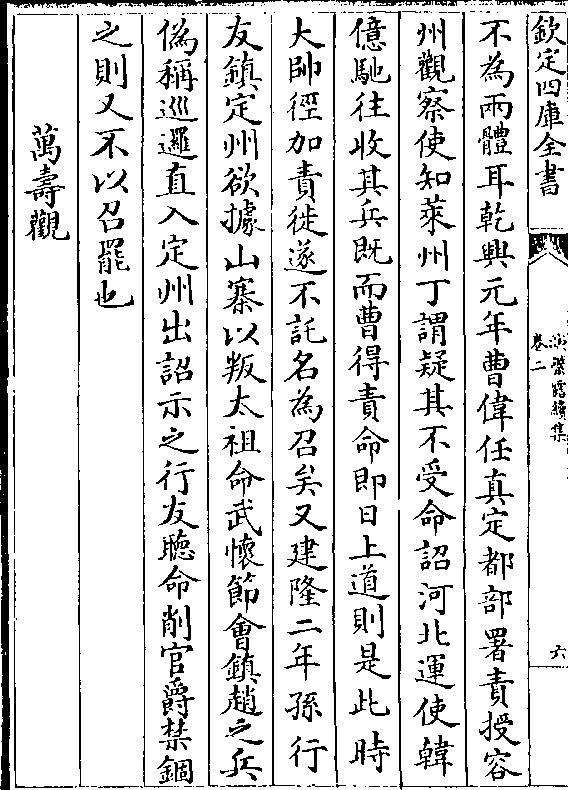 欽定四庫全書
演繁露續集
卷二
六
不為兩體耳乾興元年曹偉任真定都部署責授容
州觀察使知萊州丁謂疑其不受命詔河北運使韓
億馳往收其兵既而曹得責命即日上道則是此時
大帥徑加責徙遂不託名為召矣又建隆二年孫行
友鎮定州欲據山寨以叛太祖命武懷節會鎮趙之兵
偽稱巡邏直入定州出詔示之行友聽命削官爵禁錮
之則又不以召罷也
萬壽觀